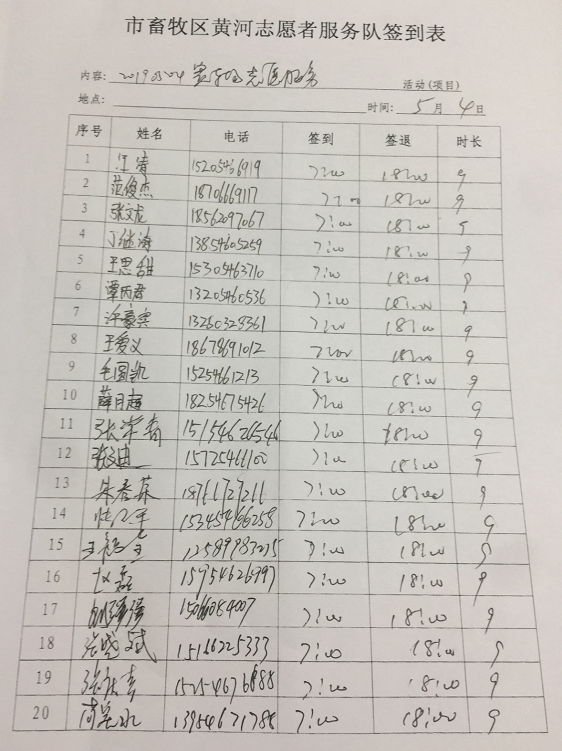 市畜牧区黄河志愿者服务队签到表
内容: 20190504 志愿服务 活动(项目)
地点: 时间: 5 月 4 日
序号 姓名 电话 签到 签退 时长
1 江涛 15205426919 7:00 18:00 9
2 范俊杰 18706669117 7:00 18:00 9
3 张文龙 18562097067 7:00 18:00 9
4 丁继海 13854605259 7:00 18:00 9
5 王思甜 15305463710 7:00 18:00 9
6 覃丙君 13205460536 7:00 18:00 9
7 许豪宾 13260328361 7:00 18:00 9
8 王爱义 18678691012 7:00 18:00 9
9 毛圆凯 15254661213 7:00 18:00 9
10 薛月超 18254675426 7:00 18:00 9
11 15154626546 7:00 18:00 9
12 15725466100 7:00 18:00 9
13 朱春菜 18766727211 7:00 18:00 9
14 7:00 18:00 9
15 7:00 18:00 9
16 15954626997 7:00 18:00 9
17 7:00 18:00 9
18 15166225333 7:00 18:00 9
19 15254676888 7:00 18:00 9
20 13954671788 7:00 18:00 9